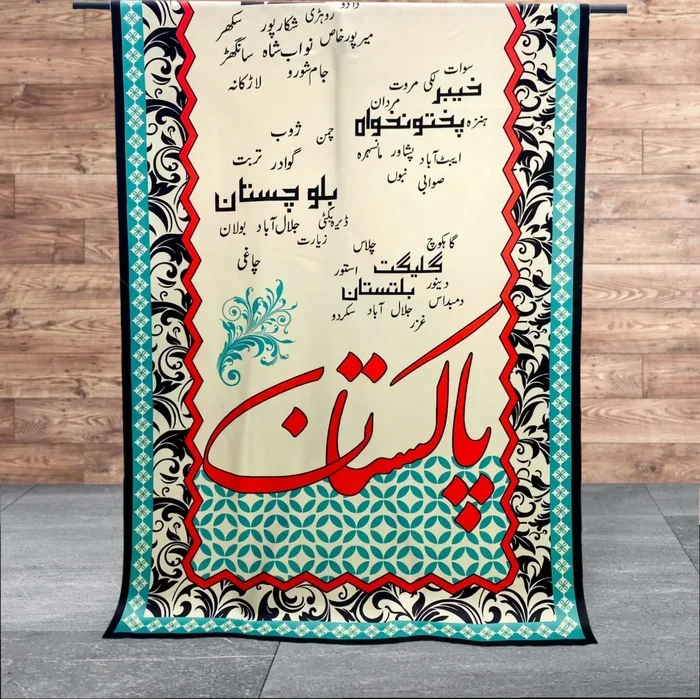 دادو
سکھر شکارپور روہڑی
سانگھڑ نواب شاہ میرپورخاص
لاڑکانہ جام شورو
سوات
لکی مروت خیبر
مردان
پختونخواہ ہنزہ
ایبٹ آباد پشاور مانسہرہ
صوابی
چمن ژوب
گوادر تربت
بلوچستان
ڈیرہ بگٹی جلال آباد بولان
زیارت
چاغی
گاہکوچ چلاس
گلگیت استور
بلتستان دینور
دمبداس
جلال آباد سکردو
غزر
پاکستان